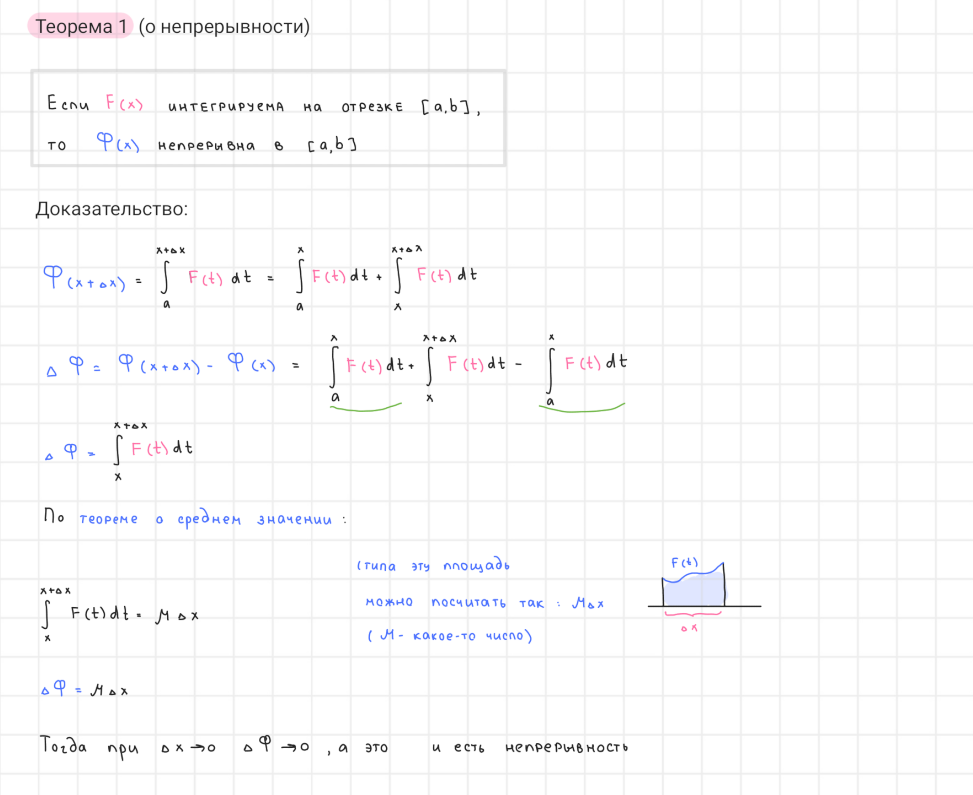 Теорема 1 (о непрерывности)
Если F(x) интегрируема на отрезке [a,b],
то Φ(x) непрерывна в [a,b]
Доказательство:
Φ(x+Δx) = ∫_a^{x+Δx} F(t) dt = ∫_a^x F(t) dt + ∫_x^{x+Δx} F(t) dt
ΔΦ = Φ(x+Δx) - Φ(x) = ∫_a^x F(t) dt + ∫_x^{x+Δx} F(t) dt - ∫_a^x F(t) dt
ΔΦ = ∫_x^{x+Δx} F(t) dt
По теореме о среднем значении:
∫_x^{x+Δx} F(t) dt = μΔx
(типа эту площадь
можно посчитать так: μΔx
(μ - какое-то число)
F(t)
Δx
ΔΦ = μΔx
Тогда при Δx→0 ΔΦ→0, а это и есть непрерывность